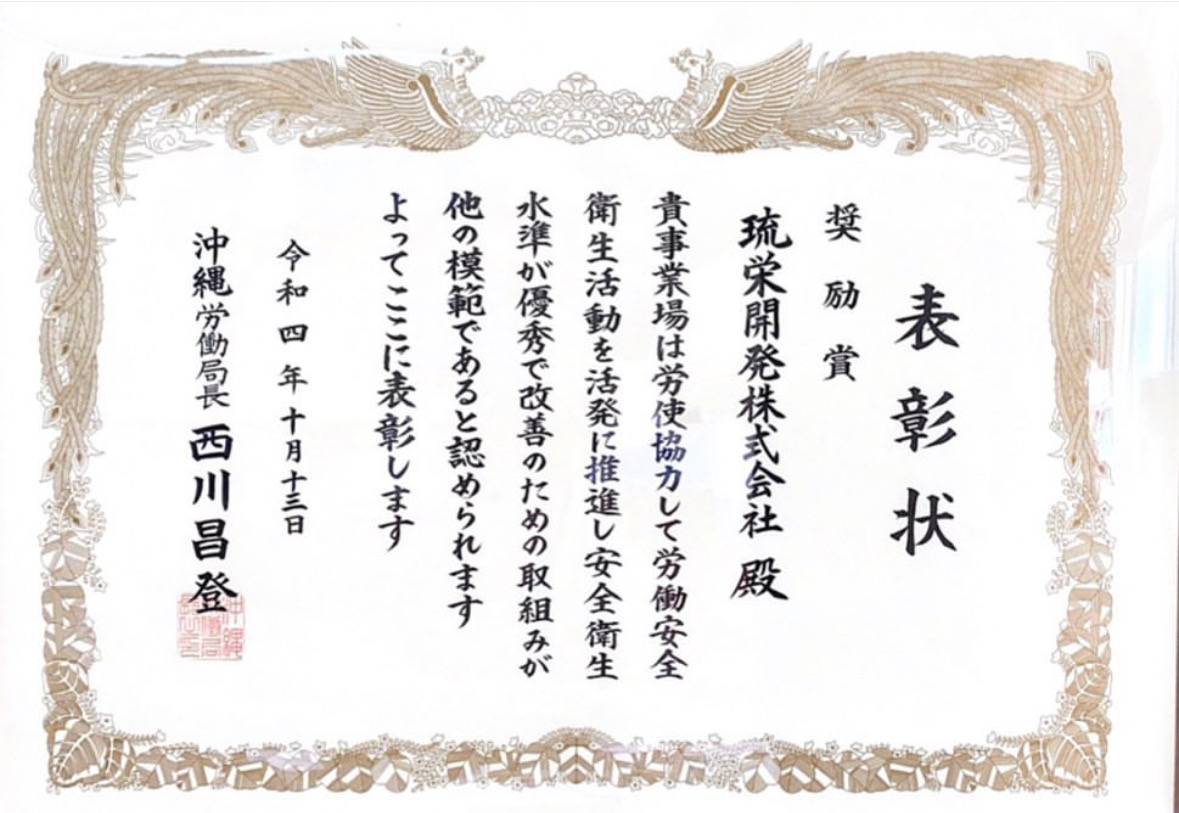 表彰状
奨励賞
琉栄開発株式会社 殿
貴事業場は労使協力して労働安全
衛生活動を活発に推進し安全衛生
水準が優秀で改善のための取組みが
他の模範であると認められます
よってここに表彰します
令和四年十月十三日
沖縄労働局長 西川昌登